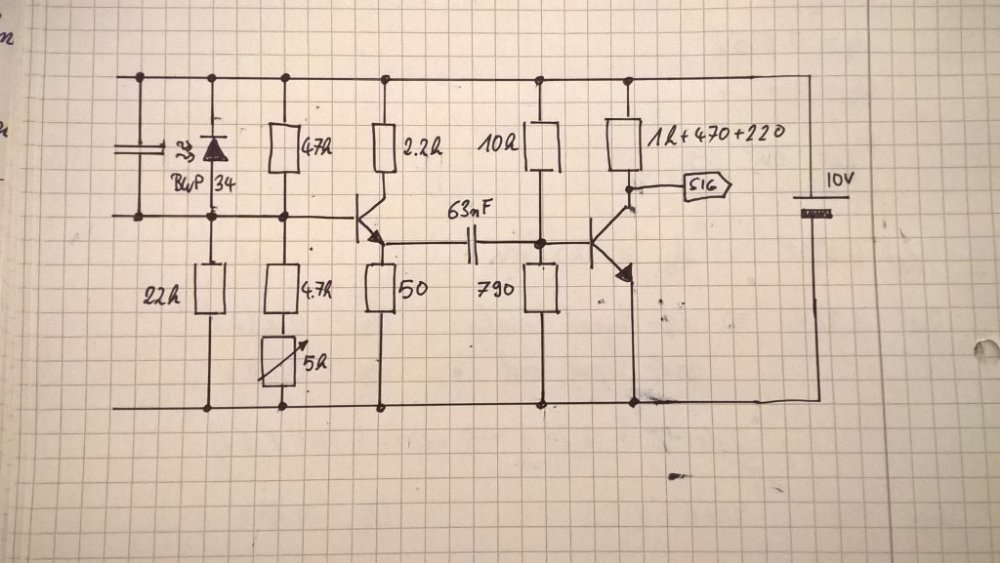 47k
2.2k
10k
1k+470+220
BWP 34
SIG
10V
63nF
22k
4.7k
50
790
5k